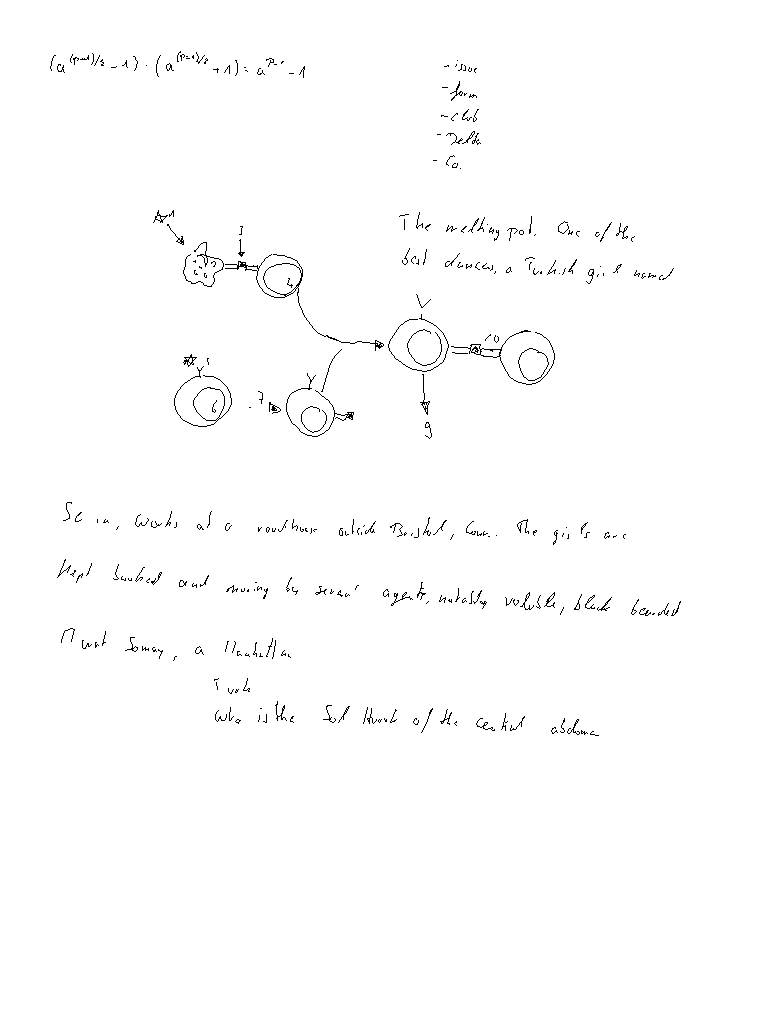 (a^(p-1)/2 - 1) · (a^(p-1)/2 + 1) = a^p-1 - 1
- issue
- form
- club
- Delta
- Co.
The melting pot. One of the
best dancers, a Turkish girl named
1
3
4
5
6
7
9
10
Se in, works at a roadhouse outside Bristol, Conn. The girls are
kept booked and moving by several agents, notably voluble, black bearded
Murat Somay, a Manhattan
Turk
who is the Sol Hurok of the central abdomen